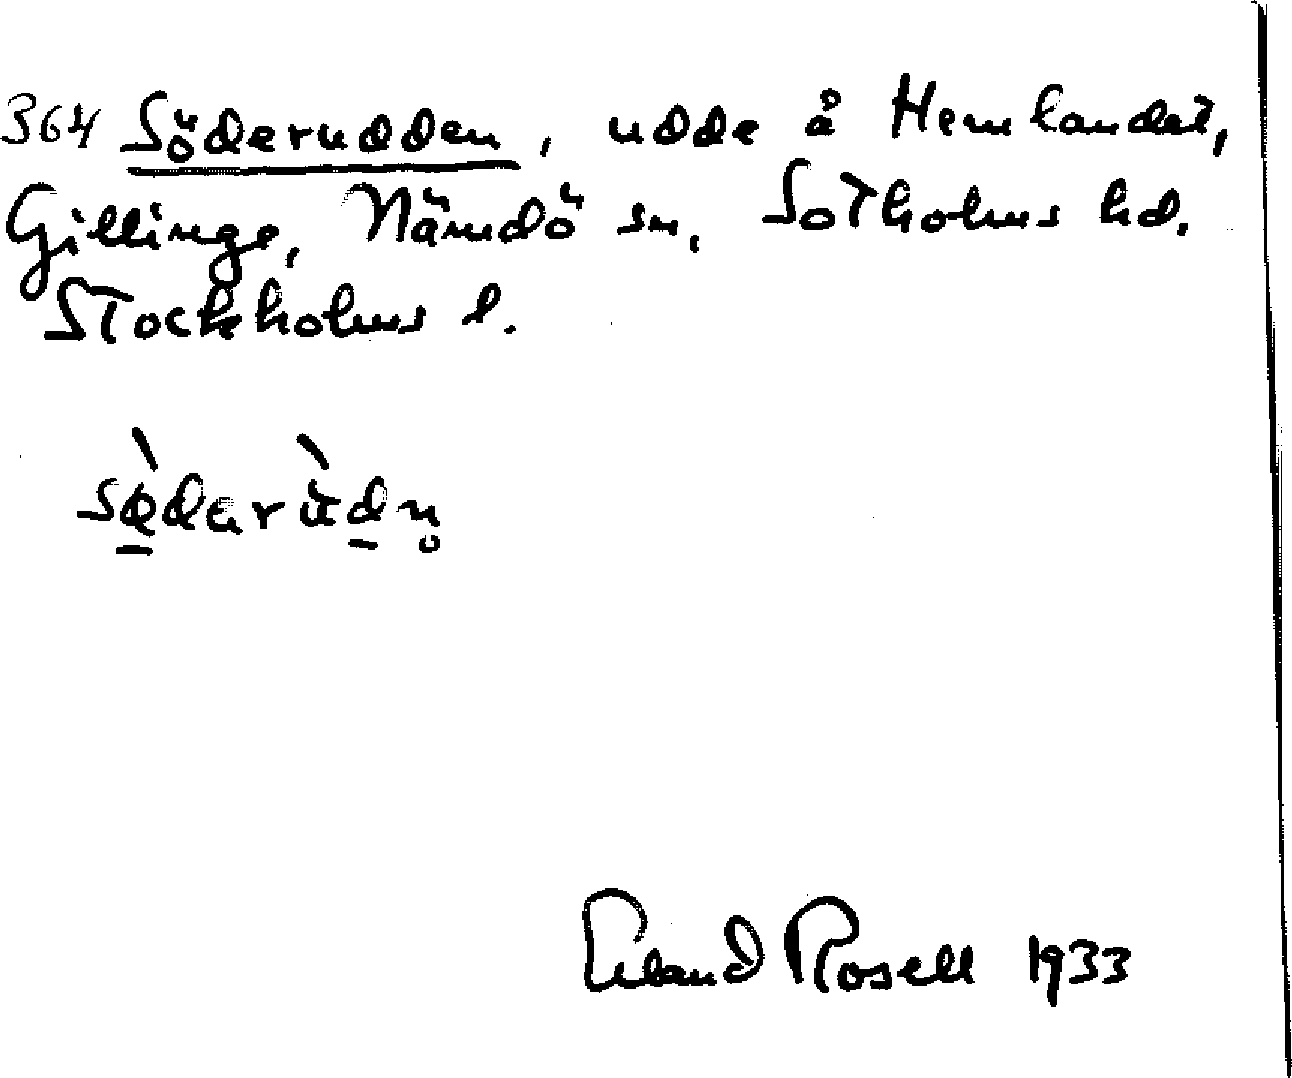 364 Söderudden, udde å Hemlandet,
Gillinge, Nämdö sn, Sotholms hd.
Stockholms l.
Erland Rosell 1933